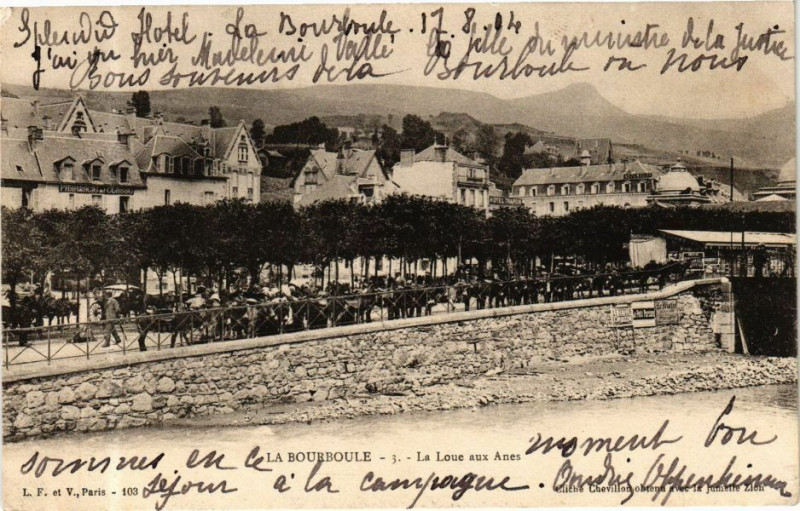 Splendid Hotel. La Bourboule. 17.8.04
J'ai vu hier Madeleine Vallé la fille du ministre de la Justice
Bons souvenirs de la Bourboule ou nous
LA BOURBOULE - 3. - La Loue aux Anes
sommes en ce moment bon
séjour à la campagne.
L. F. et V., Paris - 103
Cliché Chevillon obtenu avec la jumelle Zion